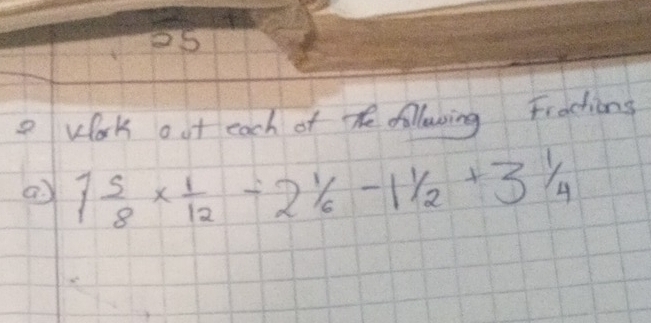 25
2 Work out each of the following Fractions
a) 1 5/8 × 1/12 ÷ 2 1/6 - 1 1/2 + 3 1/4